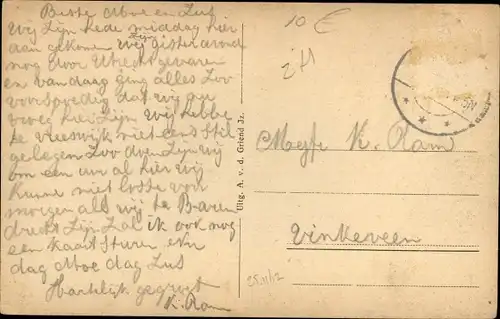 Beste Moe en Zus
Wij Zijn hede middag hier
aan gekomen Wij Zijn gister avond
nog door Utrecht gevaren
en vandaag ging alles Zoo
voorspoedig dat wij nu
vroeg hier Zijn Wij hebbe
te vreeswijk niet eens Stil
gelegen Zoo doen Zijn wij
om een uur al hier wij
Kunne niet losse voor
morgen als wij te Baren
drecht Zijn Zal ik ook nog
een kaart sturen Nu
dag Moe dag Zus
Hartelijk gegroet
K. Ram
Uitg. A. v. d. Griend Jz.
10 €
Mejfe K. Ram
Vinkeveen